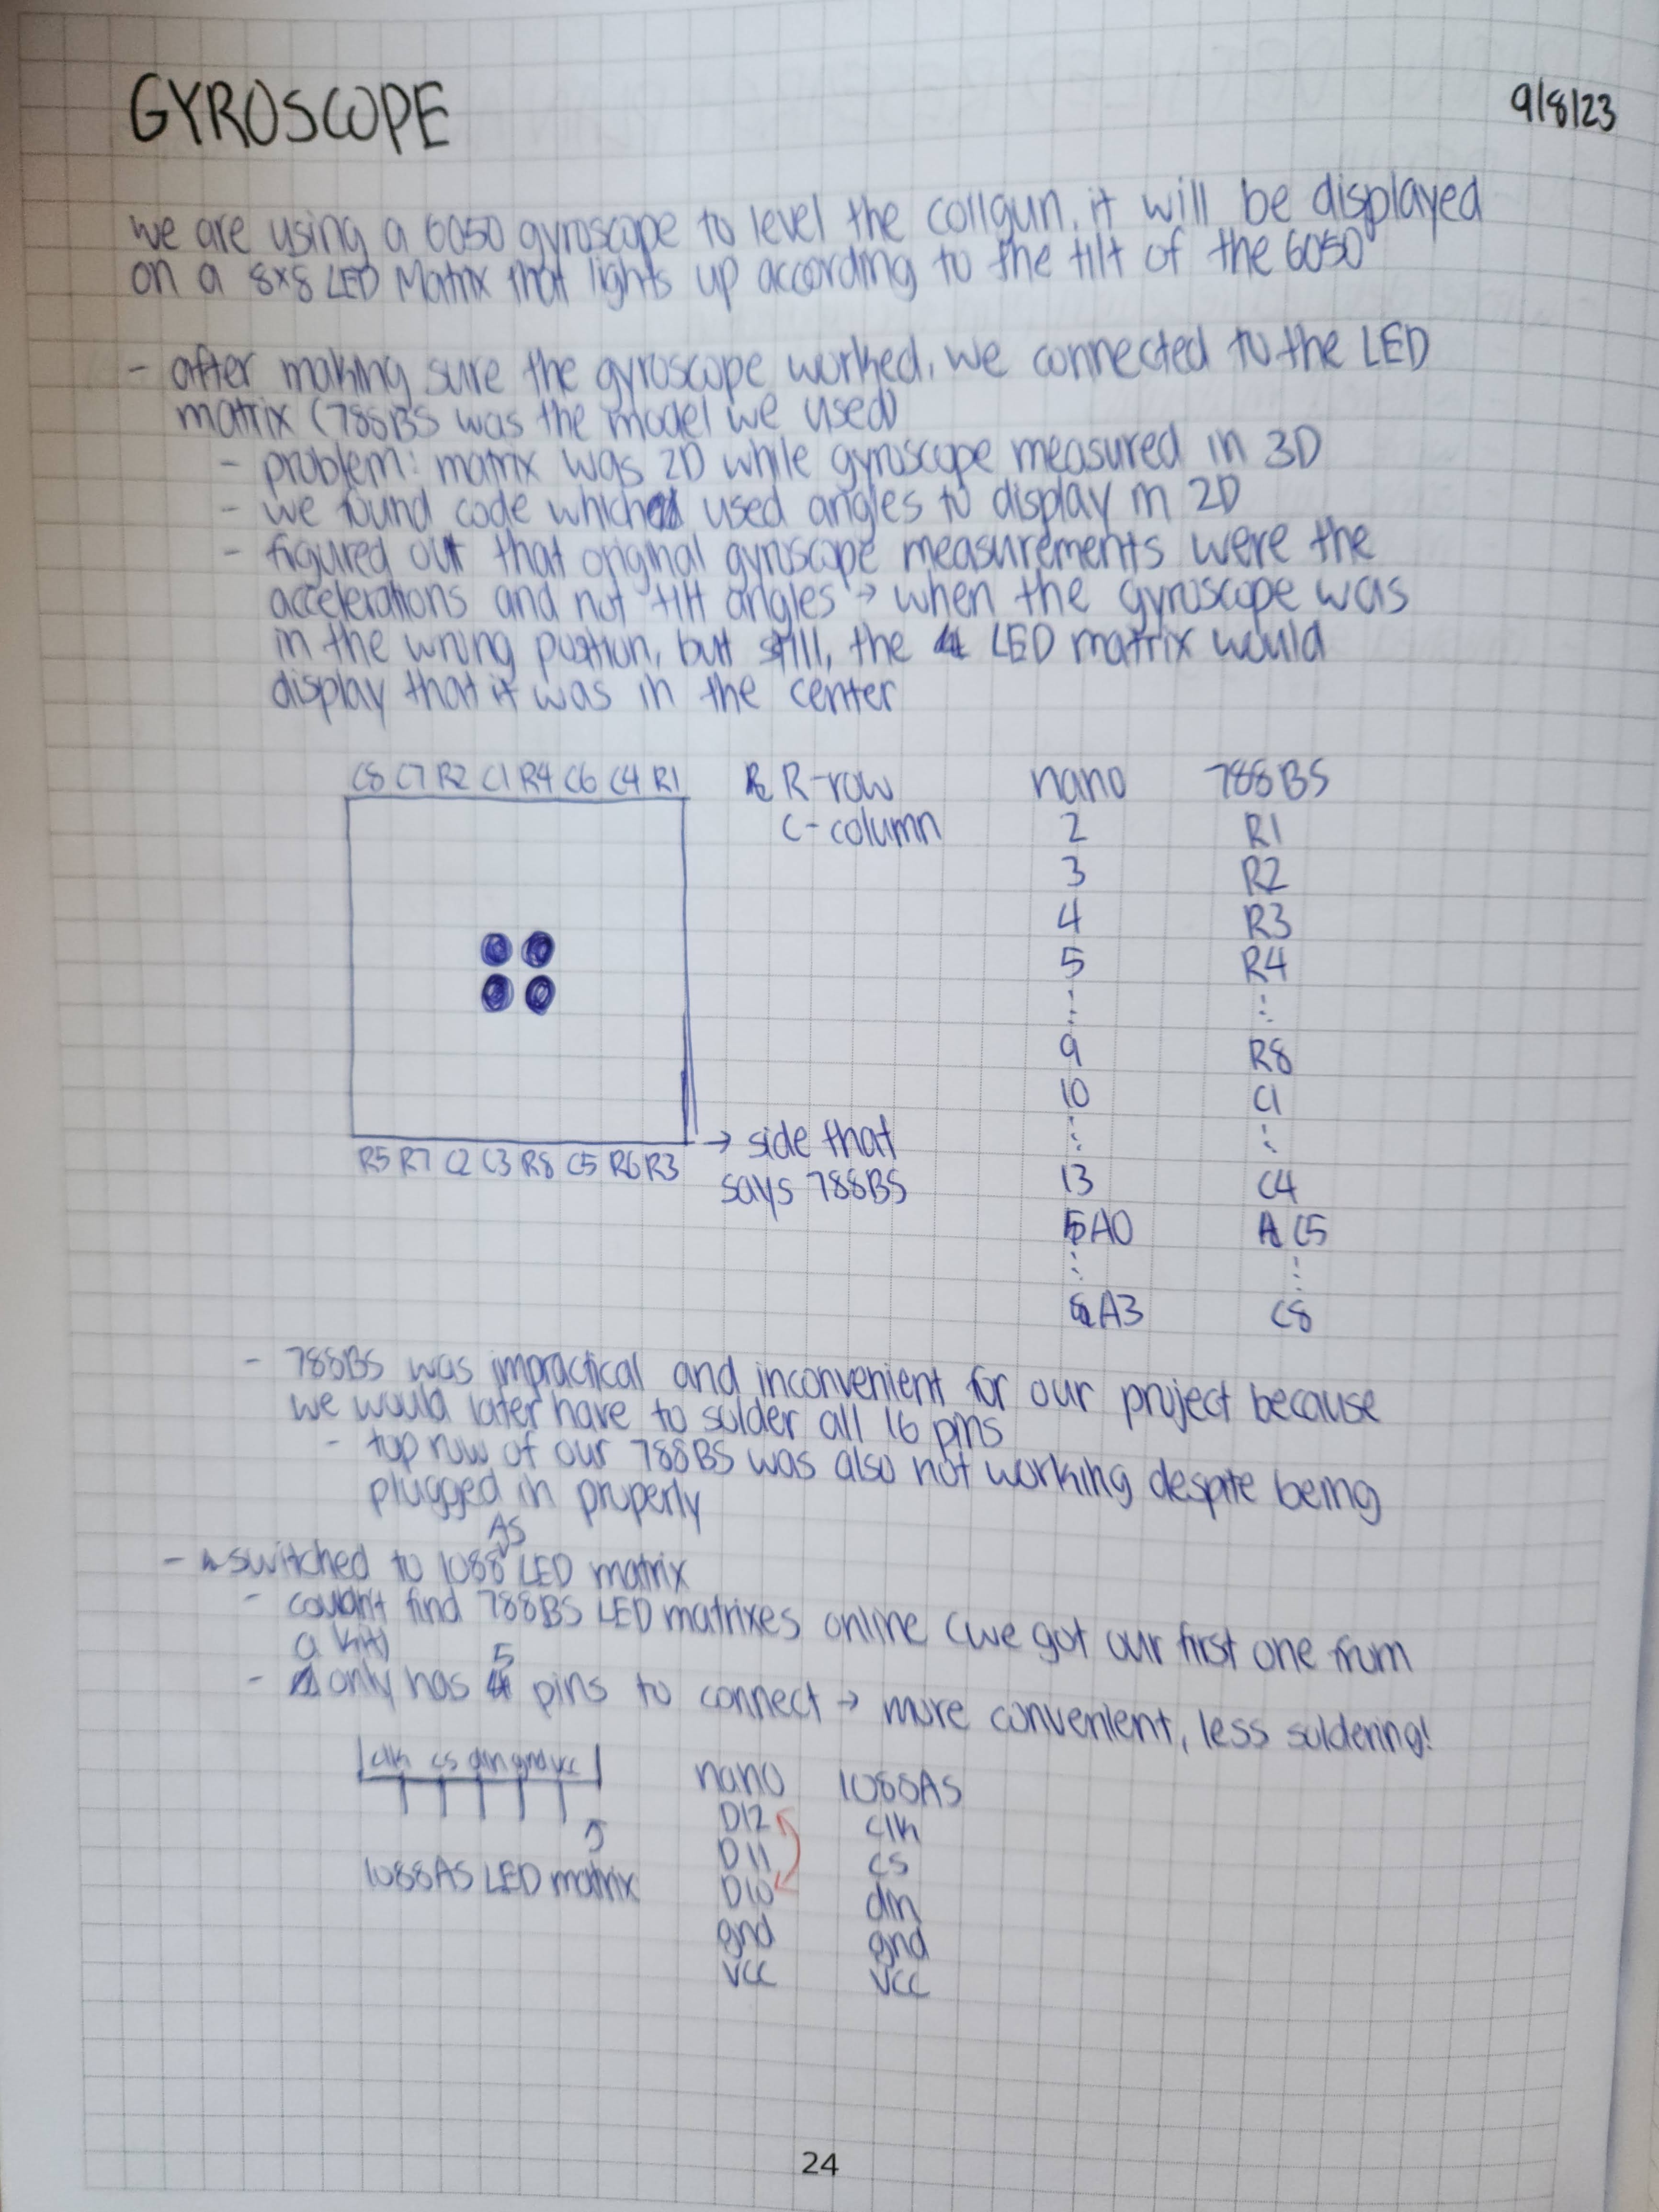 GYROSCOPE 9/8/23
we are using a 6050 gyroscope to level the coilgun. it will be displayed
on a 8x8 LED Matrix that lights up according to the tilt of the 6050
- after making sure the gyroscope worked, we connected to the LED
matrix (788BS was the model we used)
- problem: matrix was 2D while gyroscope measured in 3D
- we found code which used angles to display in 2D
- figured out that original gyroscope measurements were the
accelerations and not tilt angles → when the gyroscope was
in the wrong position, but still, the LED matrix would
display that it was in the center
C8 C7 R2 C1 R4 C6 C4 R1
R-row
C-column
R5 R7 C2 C3 R8 C5 R6 R3
→ side that
says 788BS
nano 788BS
2 R1
3 R2
4 R3
5 R4
⋮ ⋮
9 R8
10 C1
⋮ ⋮
13 C4
A0 C5
⋮ ⋮
A3 C8
- 788BS was impractical and inconvenient for our project because
we would later have to solder all 16 pins
- top row of our 788BS was also not working despite being
plugged in properly
- switched to 1088AS LED matrix
- couldn't find 788BS LED matrixes online (we got our first one from
a kit)
- only has 5 pins to connect → more convenient, less soldering!
clk cs din gnd vcc
1088AS LED matrix
nano 1088AS
D12 clk
D11 cs
D10 din
gnd gnd
vcc vcc
24